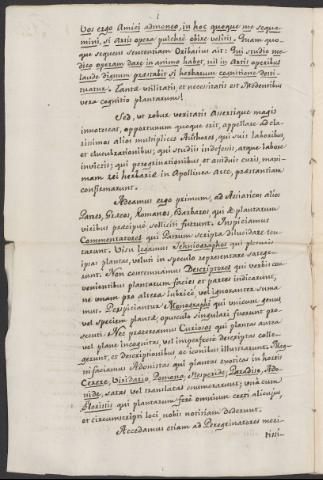 Vos ergo Amici admoneo, in hoc quoque me seque-
mini, si Artis opera pulchrè obire velitis. Quam quo-
que sequens sententiam Oribasius ait: Qui studio me-
dico operam dare in animo habet, nil in Artis operibus
laude dignum praestabit si herbarum cognitione desti-
tuatur. Tanta utilitatis, et necessitatis est Studentibus
vera cognitio plantarum!
Sed, ut robur veritatis Assertique magis
innotescat, opportunum quoque erit, appellare ad cla-
rissimos alios multiplices Authores, qui suis laboribus,
et elucubrationibus; qui studiis indefessis, atque labore
invictis; qui peregrinationibus et assiduis curis, maxi-
mam rei herbariae in Apollinea Arte, praestantiam
confirmarunt.
Adeamus ergo primum, ad Asiaticos alios
Patres, Graecos, Romanos, Barbaros qui de plantarum
viribus praecipuè solliciti fuerunt. Inspiciamus
Commentatores qui Patrum scripta dilucidare ten-
tarunt. Visu legamus Ichniographos qui
ipsas plantas, veluti in speculo repraesentare
Non contemnamus Descriptores qui verbis con-
venientibus plantarum facies et partes indicarunt,
ne unam pro altera lubricè, vel ignoranter suma-
mus. Perspiciantur Monographi qui unicum genus
vel speciem plantae, opusculo singulari fuerunt pro-
secuti. Nec praetereamus Curiosos qui plantas antea
vel planè incognitas, vel imperfectè descriptas colle-
gerunt, et descriptionibus ac iconibus illustrarunt. Neq.
inficiamur Adonistas qui plantas exoticas in hortis
Cerere, Viridario, Pomona, Hesperide, Paradiso, Ado-
nide, satas vel translatas enumerarunt; unà cum
Floristis qui plantarum ferè omnium certi alicujus,
et circumscripti loci nobis notitiam dederunt.
Accedamus etiam ad Peregrinatores meri-
tissi-